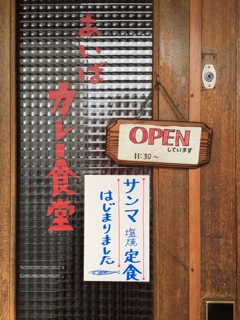 あいば
カレー食堂
OPEN
しています
11:30〜
サンマ塩焼定食
はじまりました